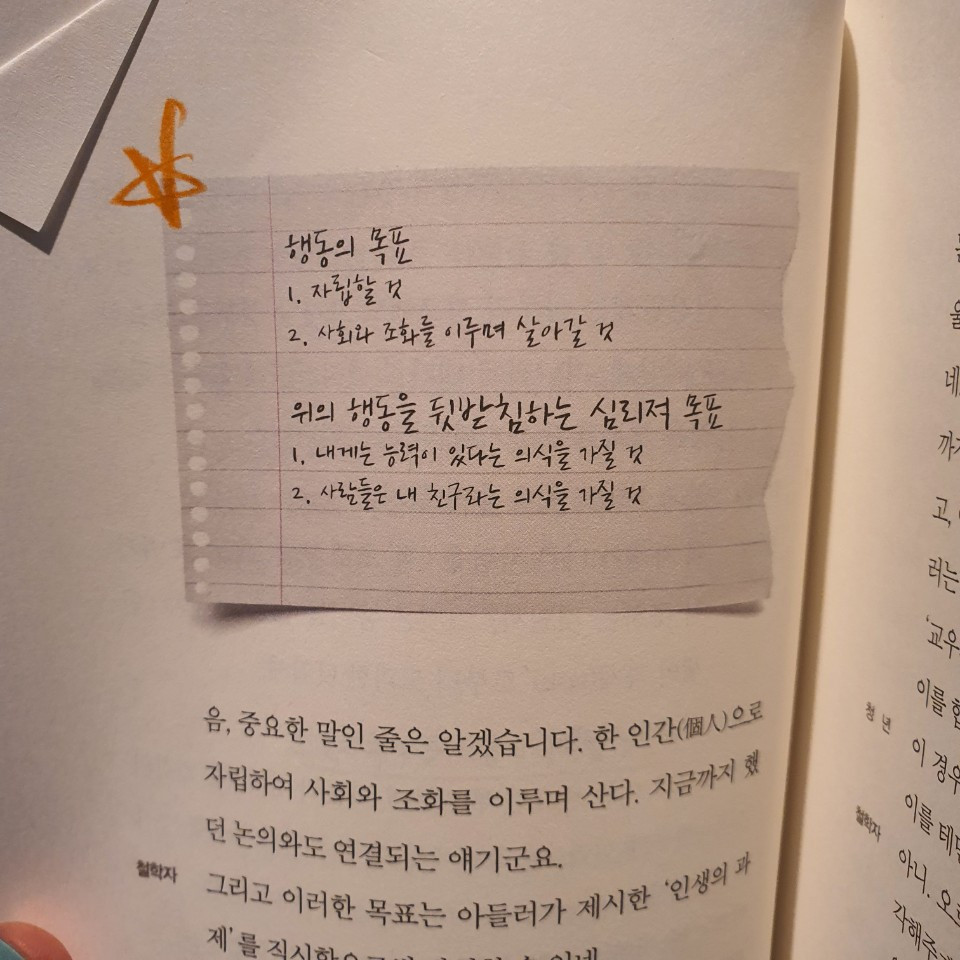 행동의 목표
1. 자립할 것
2. 사회와 조화를 이루며 살아갈 것
위의 행동을 뒷받침하는 심리적 목표
1. 내게는 능력이 있다는 의식을 가질 것
2. 사람들은 내 친구라는 의식을 가질 것
음, 중요한 말인 줄은 알겠습니다. 한 인간(個人)으로
자립하여 사회와 조화를 이루며 산다. 지금까지 했
던 논의와도 연결되는 얘기군요.
철학자 그리고 이러한 목표는 아들러가 제시한 ‘인생의 과
제’를
네
까지
고,
러는
‘교우
이를
청년 이 경우
이를
철학자 아니.